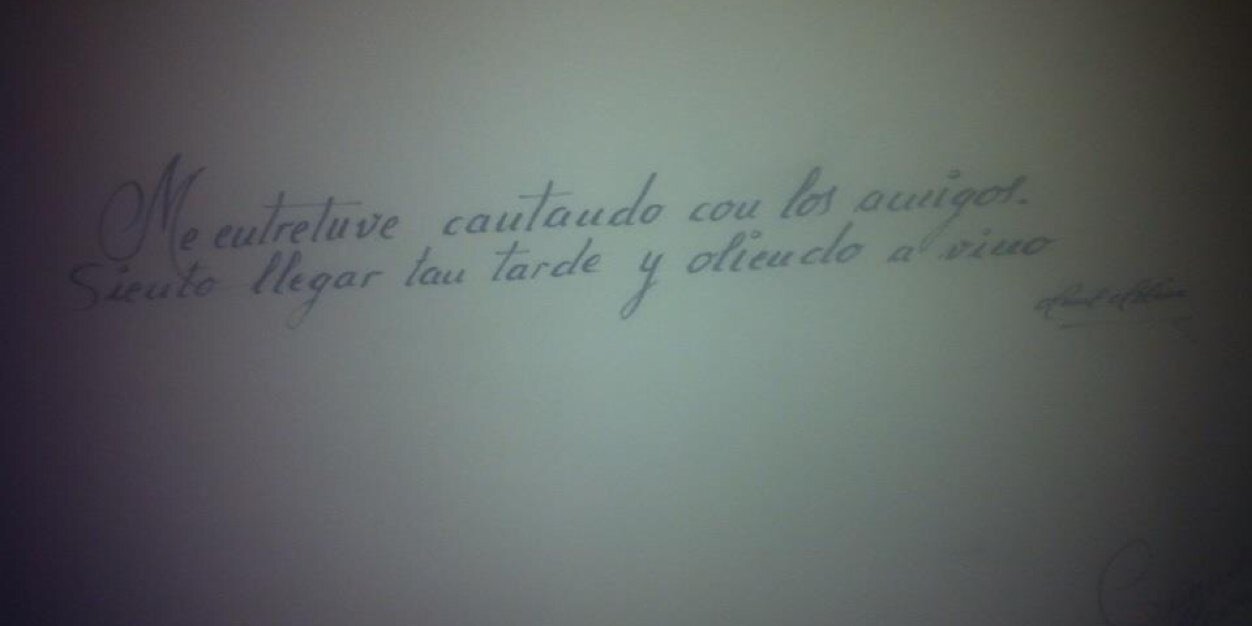 Me entretuve cantando con los amigos.
Siento llegar tan tarde y oliendo a vino